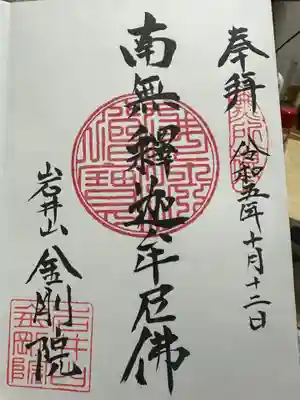 奉拝
令和五年十月十二日
南無釋迦牟尼佛
岩井山
金剛院